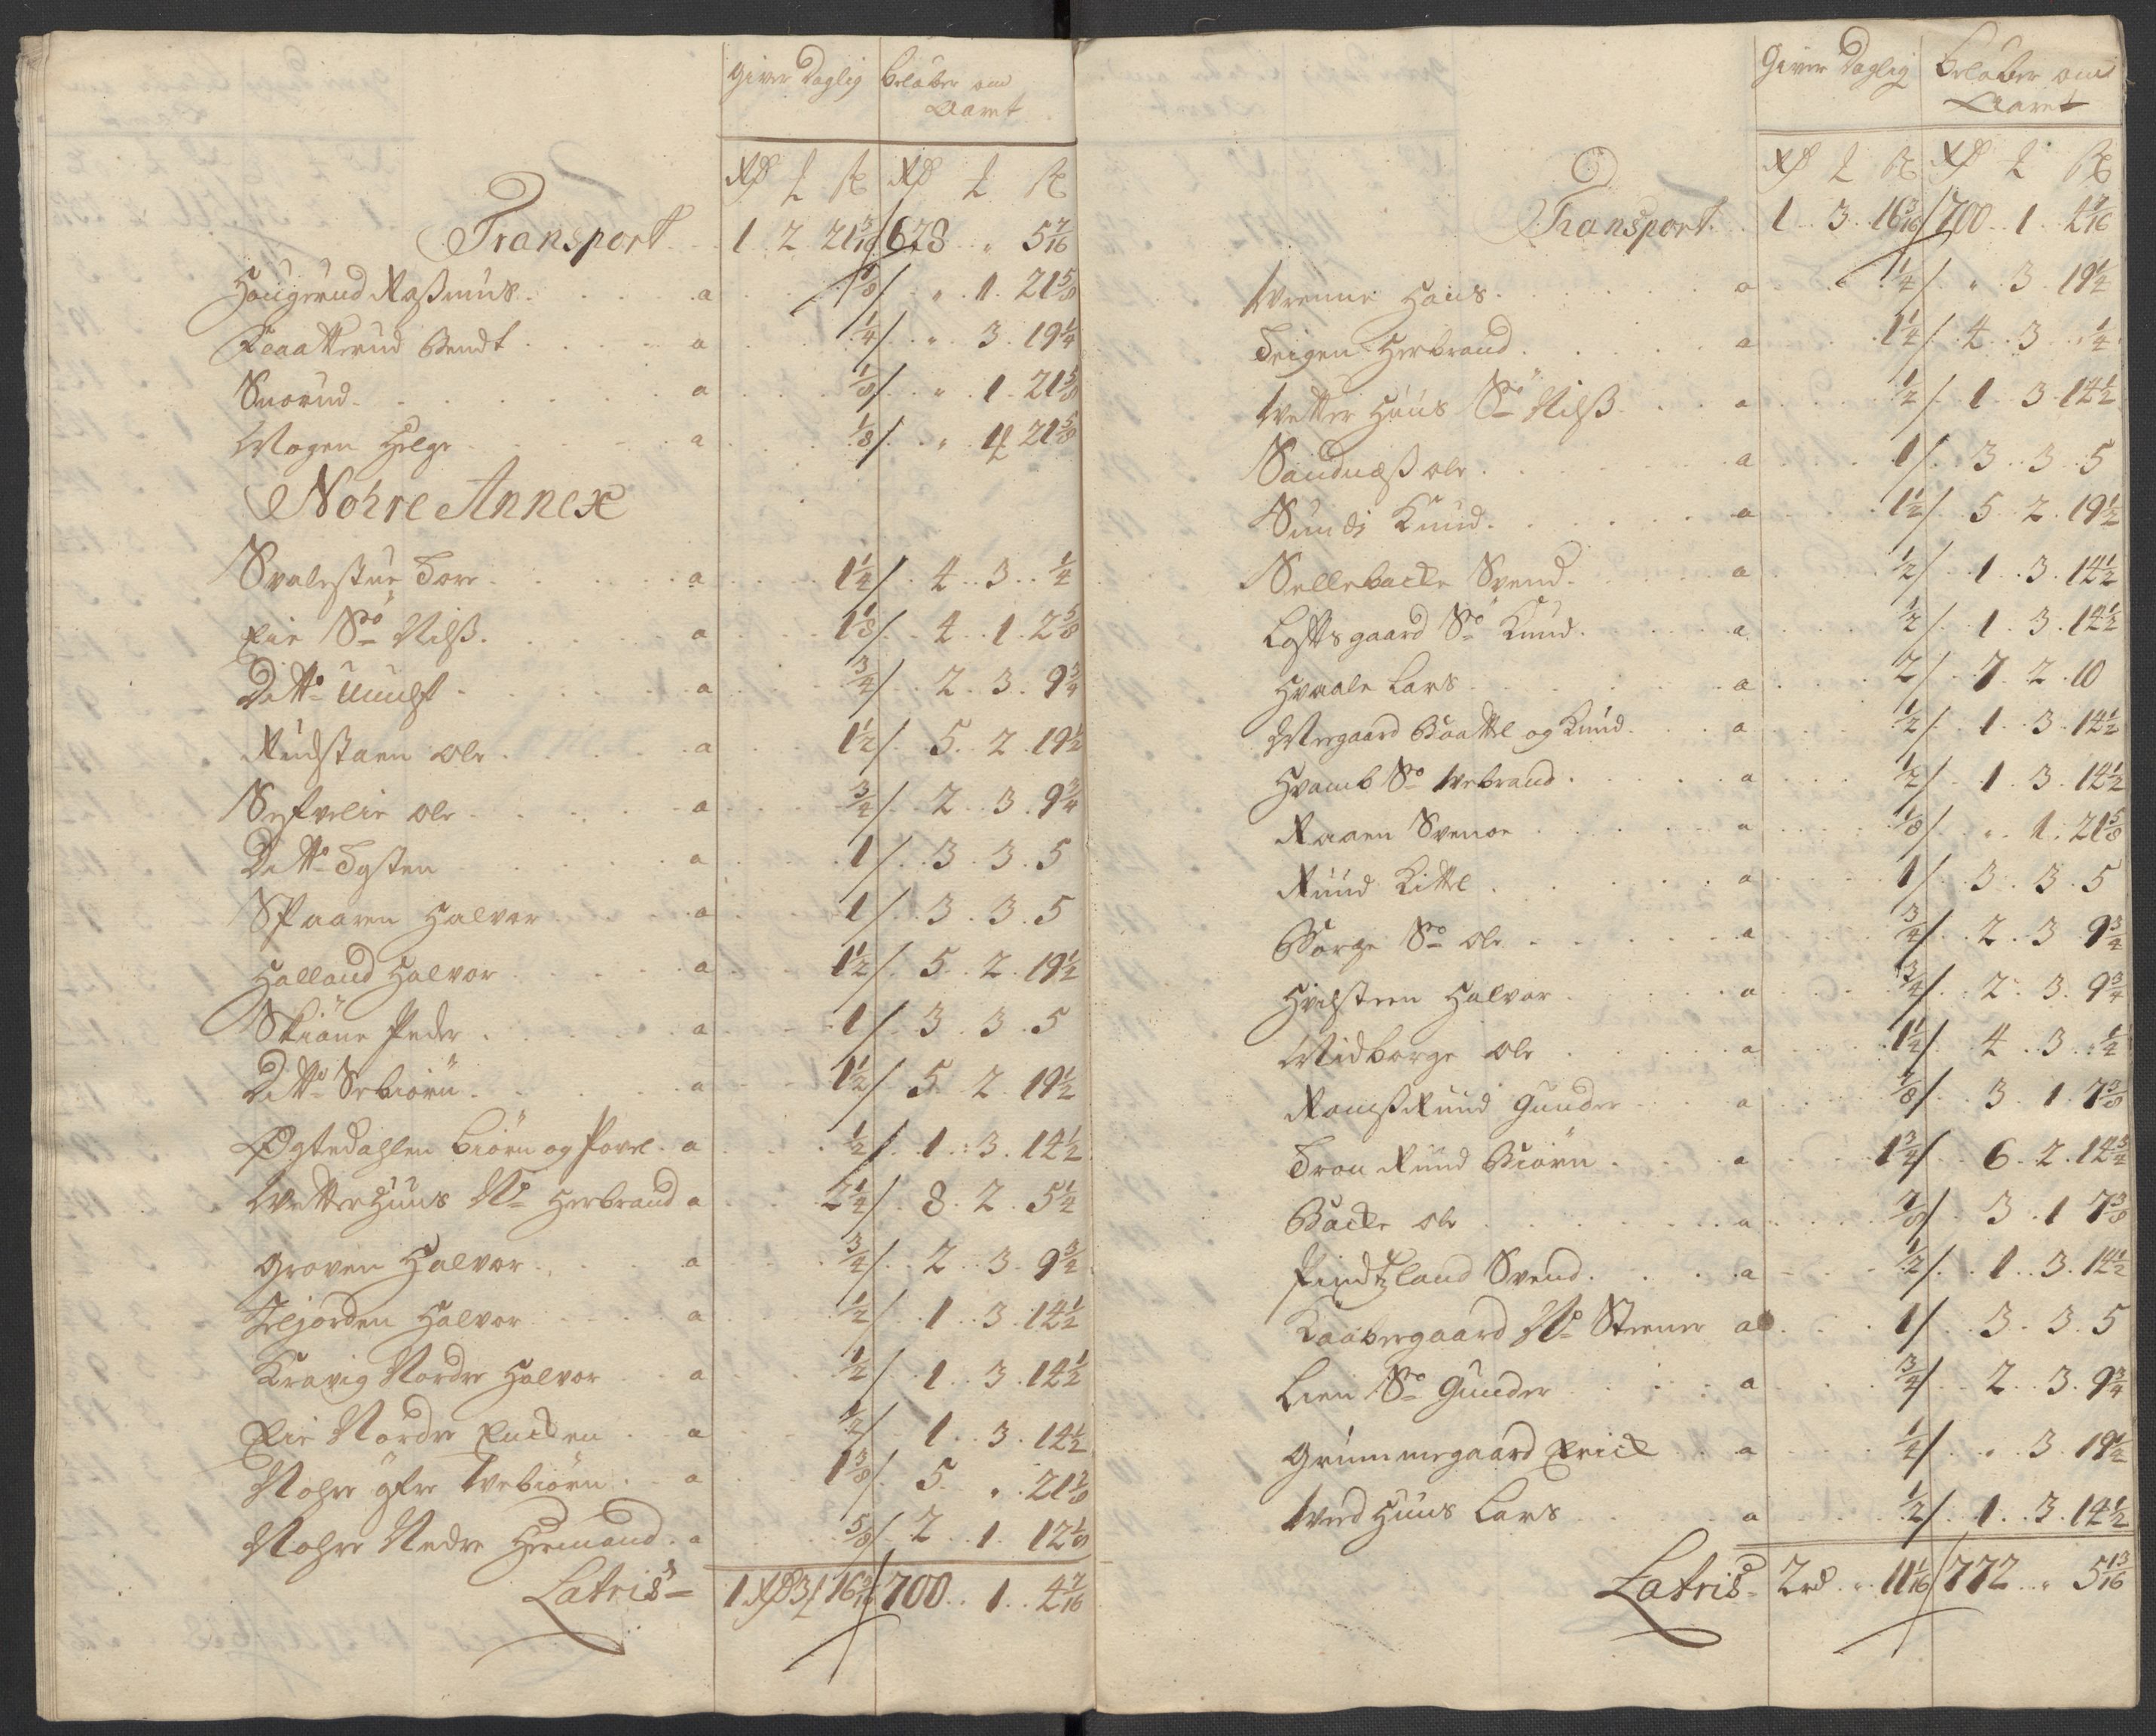 Giver Daglig Beløber om
Aaret
Rd ß Rd ß
Transport 1 2 21 3/16 / 628 „ 5 7/16
Haugerud Rasmus a 1/8 / „ 1 21 5/8
Kaatterud Bendt a 1/4 / „ 3 19 1/4
Snorud a 1/8 / „ 1 21 5/8
Mogen Helge a 1/8 / „ 1 21 5/8
Nohre Annex
Svalestue Tore a 1 1/4 / 4 3 1/4
Eie Sø Nilß a 1 1/8 / 4 1 2 5/8
Ditto a 3/4 / 2 3 9 3/4
Rudstaen ole a 1 1/2 / 5 2 19 1/2
Seftvelie ole a 3/4 / 2 3 9 3/4
Ditto Tosten a 1 / 3 3 5
Skaaren Halvor a 1 / 3 3 5
Halland Halvor a 1 1/2 / 5 2 19 1/2
Skiøne Peder a 1 / 3 3 5
Ditto Sebiørn a 1 1/2 / 5 2 19 1/2
Øgtedahlen Biørn og Povel a 1/2 / 1 3 14 1/2
Wetterhuus No Herbrand a 2 1/4 / 8 2 5 1/4
Groven Halvor a 3/4 / 2 3 9 3/4
Teljorden Halvor a 1/2 / 1 3 14 1/2
Kravig Nordre Halvor a 1/2 / 1 3 14 1/2
Eie Nordre a 1/2 / 1 3 14 1/2
Nohre øfre Webiørn a 1 3/8 / 5 „ 21 7/8
Nohre Nedre Hermand a 5/8 / 2 1 12 1/8
Latris 1 Rd 3 16 3/16 / 700 1 4 7/16
Giver Daglig Beløber om
Aaret
Rd ß Rd ß
Transport 1 3 16 3/16 / 700 1 4 7/16
Wrenne Hans a 1/4 / „ 3 19 1/4
Teigen Herbrand a 1 1/4 / 4 3 1/4
Wetter Huus Sø Nilß a 1/2 / 1 3 14 1/2
Sandnæß ole a 1 / 3 3 5
Sundi Knud a 1 1/2 / 5 2 19 1/2
Sellebacke Svend a 1/2 / 1 3 14 1/2
Loftsgaard Sø Knud a 1/2 / 1 3 14 1/2
Hvaale Lars a 2 / 7 2 10
Mergaard Baattel og Knud a 1/2 / 1 3 14 1/2
Hvamb Sø Webrand a 1/2 / 1 3 14 1/2
Raaen Svenoe a 1/8 / „ 1 21 5/8
Ruud Kittel a 1 / 3 3 5
Borge Sø ole a 3/4 / 2 3 9 3/4
Hvilsteen Halvor a 3/4 / 2 3 9 3/4
Midborge ole a 1 1/4 / 4 3 1/4
Ramsrund Gunder a 7/8 / 3 1 7 3/8
Tron Ruud Biørn a 1 3/4 / 6 2 14 3/4
Backe ole a 7/8 / 3 1 7 3/8
Svend a 1/2 / 1 3 14 1/2
Kaabergaard No Steener a 1 / 3 3 5
Lien Sø Gunder a 3/4 / 2 3 9 3/4
Grimmegaard Erick a 1/4 / „ 3 19 1/4
Wed Huus Lars a 1/2 / 1 3 14 1/2
Latris 2 rd „ 11 1/16 / 772 „ 5 13/16